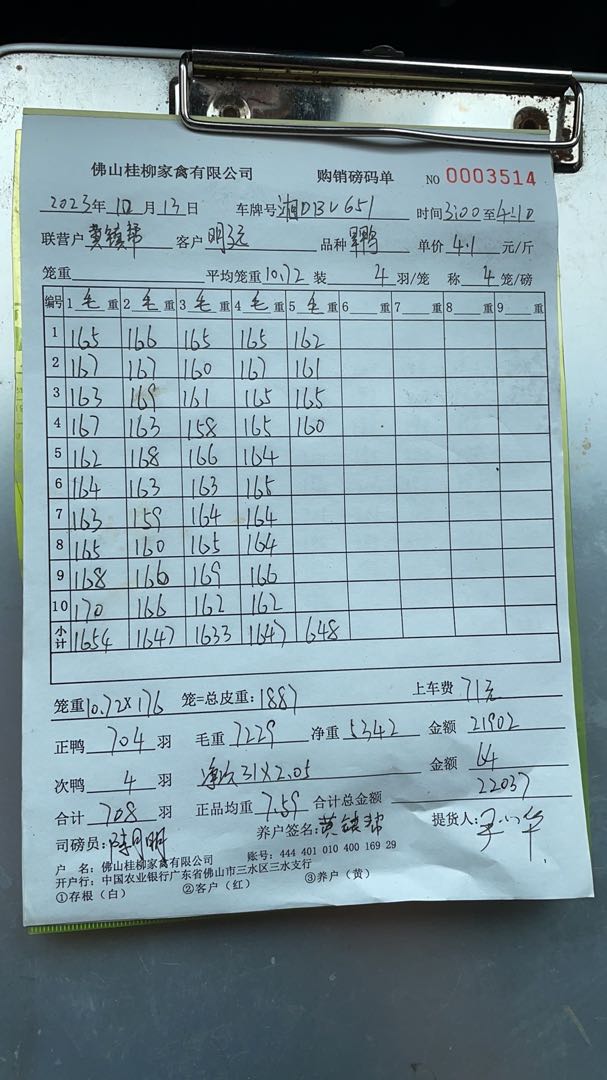 佛山桂柳家禽有限公司 购销磅码单 NO 0003514
2023年10月13日 车牌号湘DBV651 时间3:00至4:10
联营户黄镇帮 客户 品种 单价4.1元/斤
笼重 平均笼重10.72 装4羽/笼 称4笼/磅
编号 1毛重 2毛重 3毛重 4毛重 5毛重 6重 7重 8重 9重
1 165 166 165 165 162
2 167 167 160 167 161
3 163 169 161 165 165
4 167 163 158 165 160
5 162 168 166 164
6 164 163 163 165
7 163 159 164 164
8 165 160 165 164
9 168 166 169 166
10 170 166 162 162
小计 1654 1647 1633 1647 648
笼重10.72×176 笼=总皮重:1887 上车费71元
正鸭704羽 毛重7229 净重5342 金额21902
次鸭4羽 净次31×2.05 金额64
合计708羽 正品均重7.59 合计总金额22037
司磅员: 养户签名:黄镇帮 提货人:
户 名:佛山桂柳家禽有限公司 账号:444 401 010 400 169 29
开户行:中国农业银行广东省佛山市三水区三水支行
①存根(白) ②客户(红) ③养户(黄)